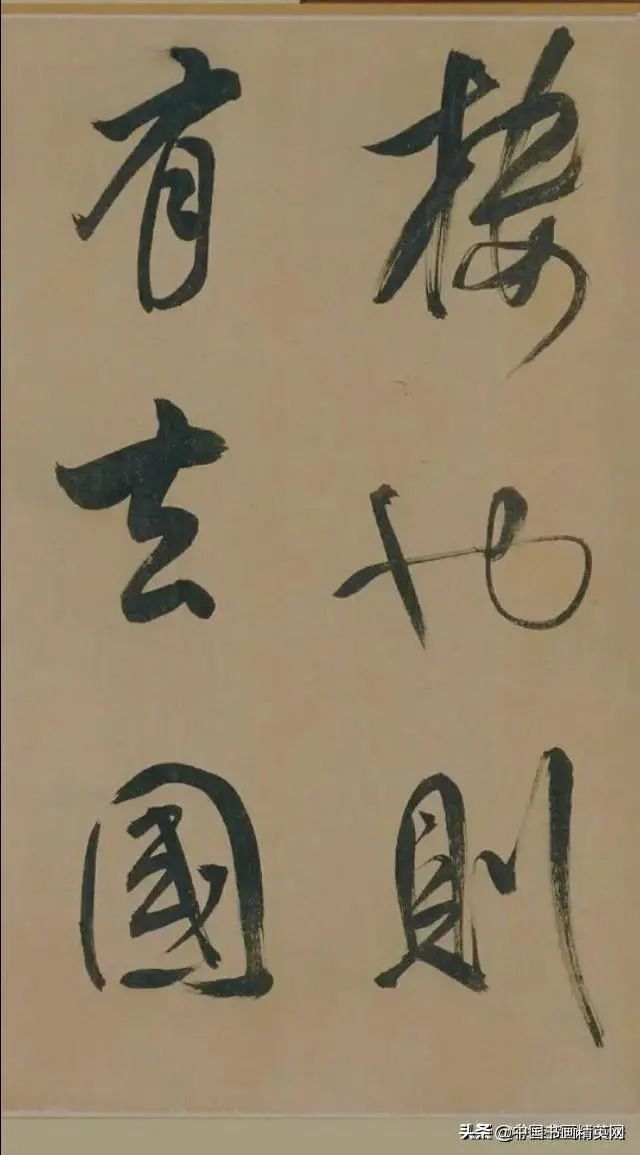 樓也則
有去國
头条 @中国书画精英网